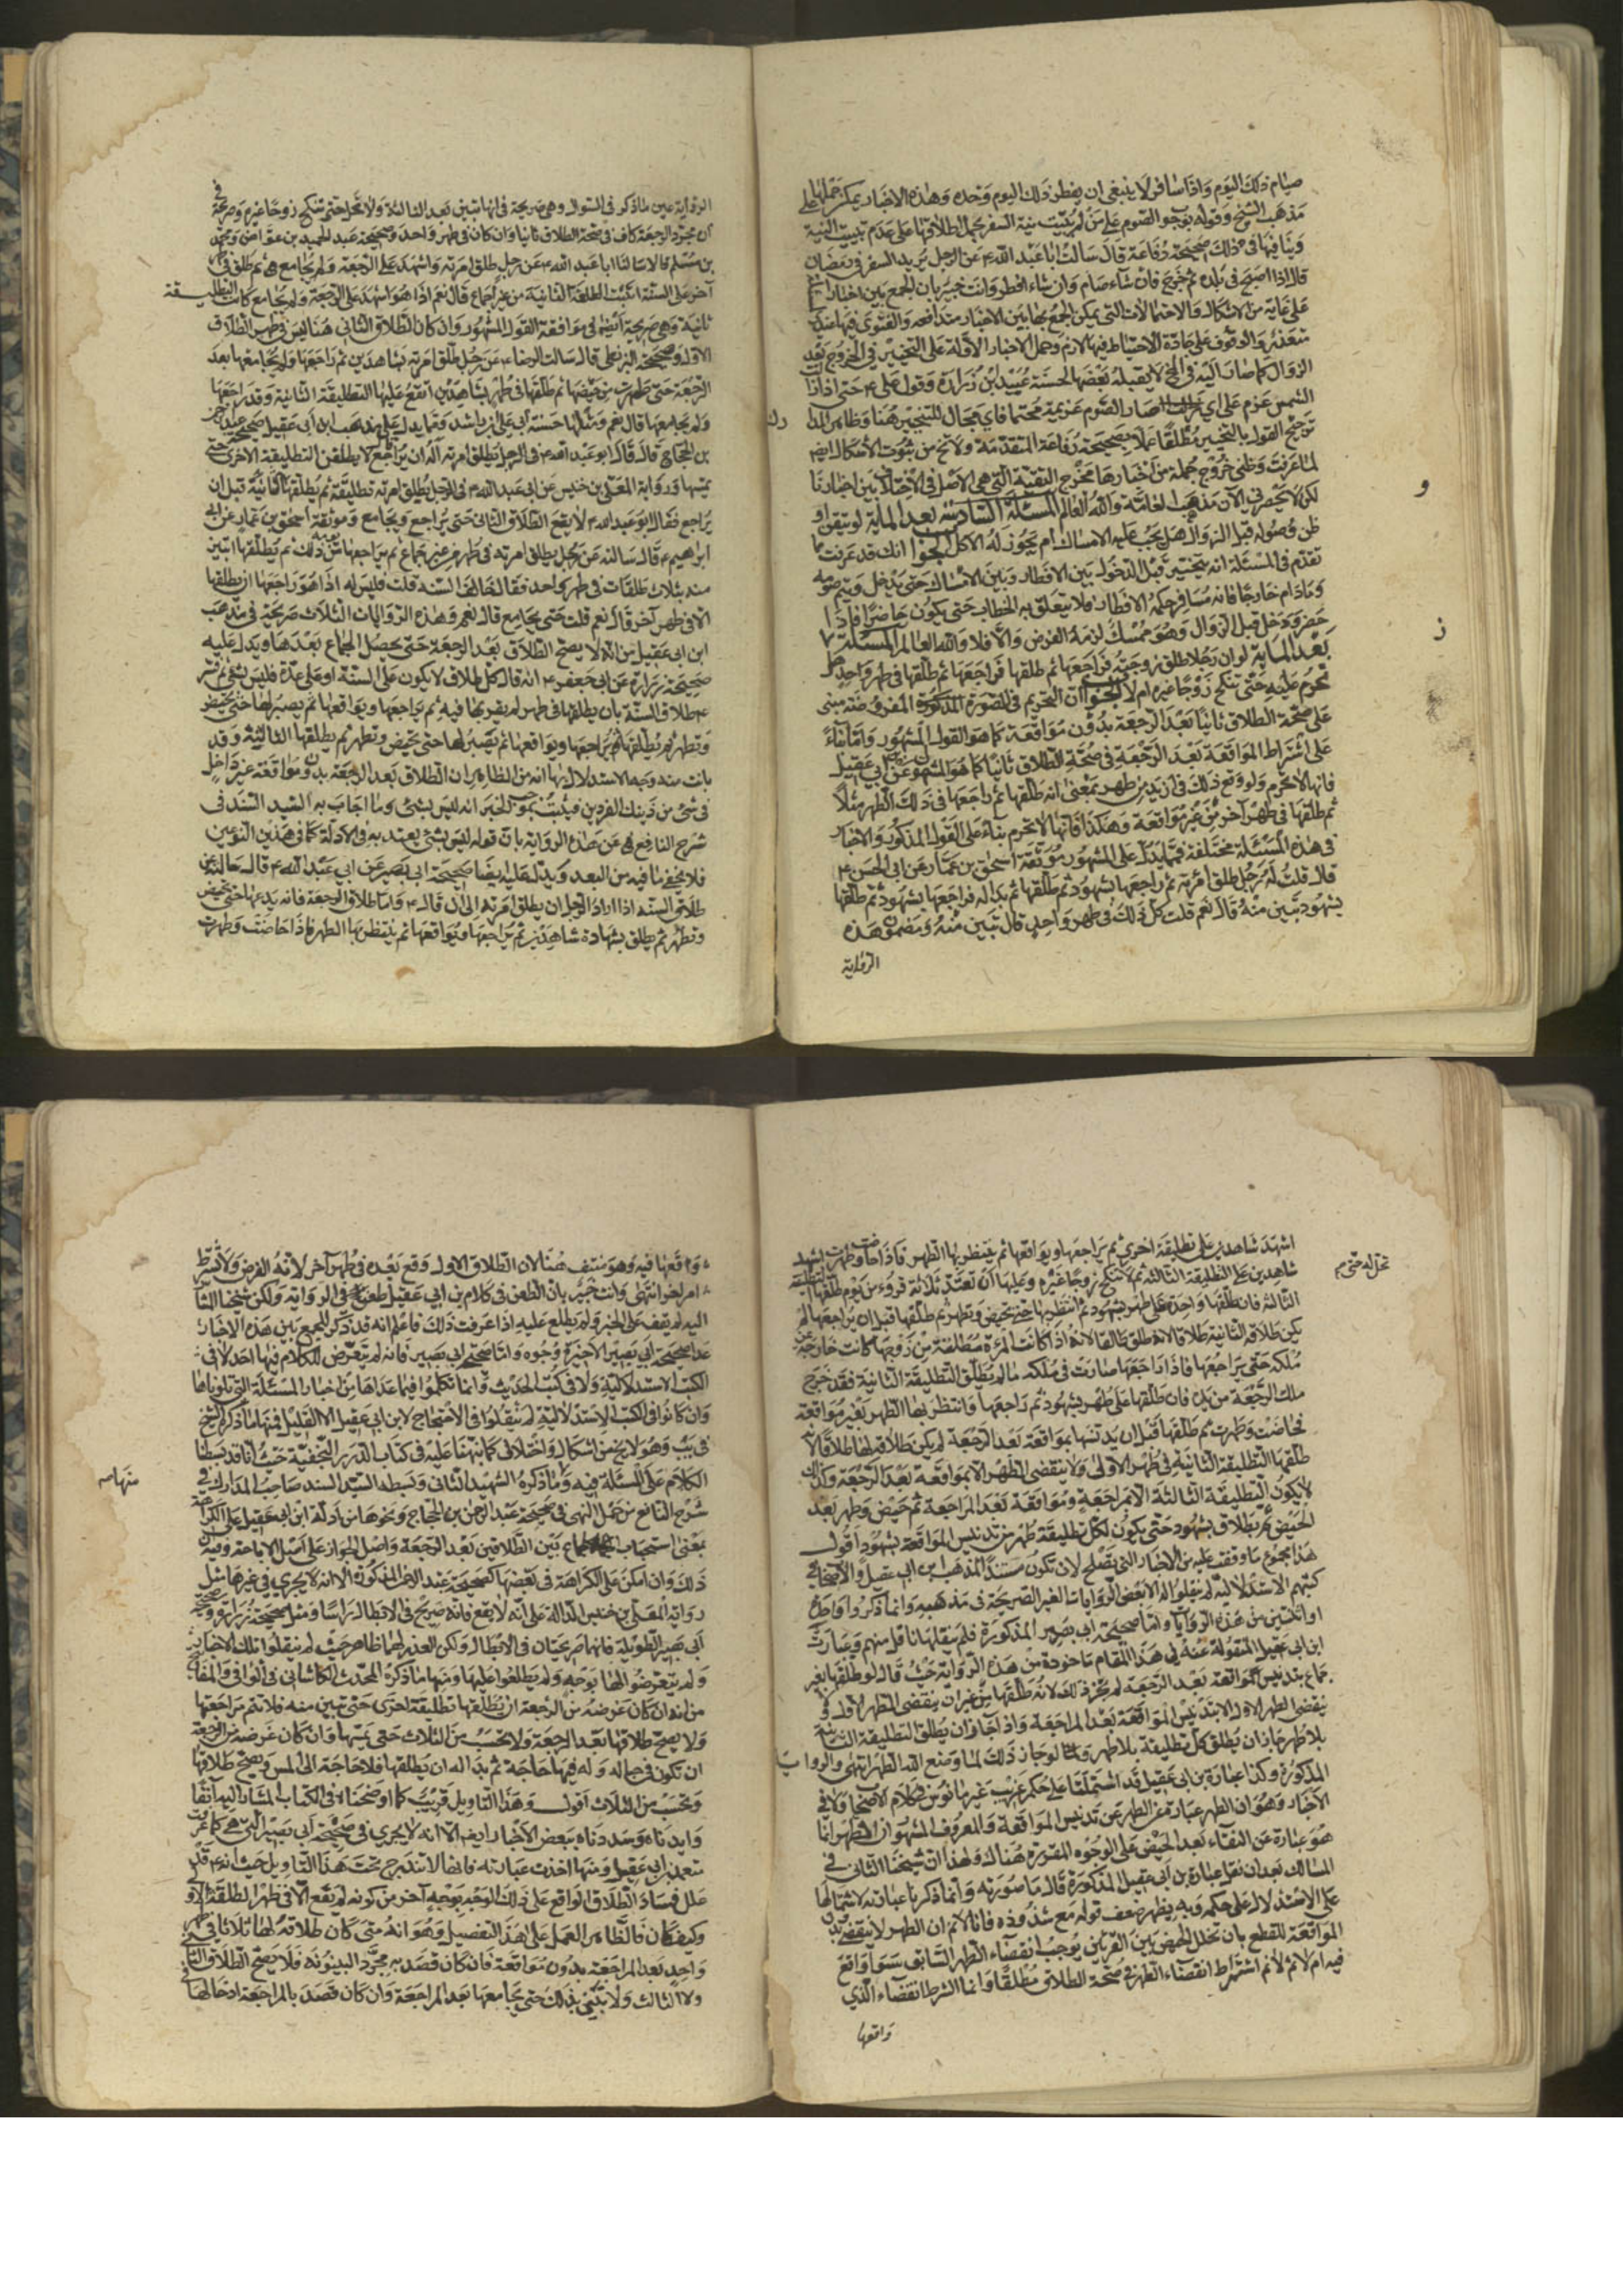 صيام ذلك اليوم واذا سافر لا ينبغى ان يفطر ذلك اليوم وحده وهذه الاخبار يمكن حملها على
مذهب الشيخ وقوله بوجوب الصوم على من لم يبيت نية السفر بحمل اطلاقها على عدم تبييت النية
وينافيها فى ذلك صحيحة رفاعة قال سالت ابا عبد الله ع عن الرجل يريد السفر فى رمضان
قال اذا اصبح فى بلده ثم خرج فان شاء صام وان شاء افطر وانت خبير بان الجمع بين اخبار
على غاية من الاشكال والاحتمالات التى يمكن الجمع بها بين الاخبار متدافعه والفتوى فيها عندى
متعذره والوقوف على جادة الاحتياط فيها لازم وحمل الاخبار الاولة على التخيير فى الخروج بعد
الزوال كما صار اليه فى الخ لا يقبله بعضها كحسنة عبيد بن زرارة وقوله ع حتى اذا زالت
الشمس عزم على اي صار الصوم عزيمة محتما فاي مجال للتخيير هنا وظاهر المدا
رك
ترجيح القول بالتخيير مطلقا عملا بصحيحة رفاعة المتقدمة ولا تخ من ثبوت الاشكال ايضا
لما عرفت وظنى خروج جملة من اخبارها مخرج التقية التى هى الاصل فى الاختلاف بين اخبارنا
لكن لا يحضرنى الآن مذهب العامة والله العالم المسئلة السادسة بعد الماية لو تيقن او
و
ظن وصوله قبل الزوال هل يجب عليه الامساك ام يجوز له الاكل الجواب انك قد عرفت مما
تقدم فى المسئلة انه يتخير قبل الدخول بين الافطار وبين الامساك حتى يدخل ويتم صومه
وما دام خارجا فانه مسافر حكمه الافطار فلا يتعلق به الخطاب حتى يكون حاضرا فاذا
حضر ودخل قبل الزوال وهو ممسك لزمه الفرض والا فلا والله العالم المسئلة ٧
ز
بعد الماية لو ان رجلا طلق زوجته فراجعها ثم طلقها فراجعها ثم طلقها فى طهر واحد هل
تحرم عليه حتى تنكح زوجا غيره ام لا الجواب ان التحريم فى الصورة المذكورة المفروضة مبنى
على صحة الطلاق ثانيا بعد الرجعة بدون مواقعة كما هو القول المشهور واما بناء
على اشتراط المواقعة بعد الرجعة فى صحة الطلاق ثانيا كما هو المشهور عن ابن ابى عقيل
فانها لا تحرم ولو وقع ذلك فى ازيد من طهر بمعنى انه طلقها ثم راجعها فى ذلك الطهر مثلا
ثم طلقها فى طهر آخر من غير مواقعة وهكذا فانها لا تحرم بناء على القول المذكور والاخبار
فى هذه المسئلة مختلفة فمما يدل على المشهور موثقة اسحق بن عمار عن ابى الحسن ع
قال قلت له رجل طلق امرته ثم راجعها بشهود ثم طلقها ثم بدا له فراجعها بشهود ثم طلقها
بشهود تبين منه قال نعم قلت كل ذلك فى طهر واحد قال تبين منه ومضمون هذه
الرواية
الرواية عين ما ذكر فى السوال وهى صريحة فى انها تبين بعد الثالثة ولا تحل حتى تنكح زوجا غيره وصريحة فى
ان مجرد الرجعة كاف فى صحة الطلاق ثانيا وان كان فى طهر واحد وصحيحة عبد الحميد بن عواض ومحمد
بن مسلم قالا سالنا ابا عبد الله ع عن رجل طلق امرته واشهد على الرجعة ولم يجامع ثم طلق فى طهر
آخر على السنة اتثبت الطلقة الثانية من غير جماع قال نعم اذا هو اشهد على الرجعة ولم يجامع كانت التطليقة
ثانية وهى صريحة ايضا فى موافقة القول المشهور وان كان الطلاق الثانى هنا ليس فى طهر الطلاق
الاول وصحيحة البزنطى قال سالت الرضا ع عن رجل طلق امرته بشاهدين ثم راجعها ولم يجامعها بعد
الرجعة حتى طهرت من حيضها ثم طلقها فى طهر بشاهدين اتقع عليها التطليقة الثانية وقد راجعها
ولم يجامعها قال نعم ومثلها حسنة ابى على بن راشد ومما يدل على مذهب ابن ابى عقيل صحيحة عبد الرحمن
بن الحجاج قال قال ابو عبد الله ع فى الرجل يطلق امرته اله ان يراجع قال لا يطلقن التطليقة الاخرى حتى
يمسها ورواية المعلى بن خنيس عن ابى عبد الله ع فى الرجل يطلق امرته تطليقة ثم يطلقها الثانية قبل ان
يراجع فقال ابو عبد الله ع لا يقع الطلاق الثانى حتى يراجع ويجامع وموثقة اسحق بن عمار عن ابى
ابراهيم ع قال سالته عن رجل يطلق امرته فى طهر من غير جماع ثم يراجعها من يومه ذلك ثم يطلقها اتبين
منه بثلاث طلقات فى طهر واحد فقال خالف السنة قلت فليس له اذا هو راجعها ان يطلقها
الا فى طهر آخر قال نعم قلت حتى يجامع قال نعم وهذه الروايات الثلاث صريحة فى مذهب
ابن ابى عقيل من انه لا يصح الطلاق بعد الرجعة حتى يحصل الجماع بعدها ويدل عليه
صحيحة زرارة عن ابى جعفر ع انه قال كل طلاق لا يكون على السنة او على عدة فليس بشئ ثم فسر
ع طلاق السنة بان يطلقها فى طهر لم يقربها فيه ثم يراجعها ويواقعها ثم يصبر لها حتى تحيض
وتطهر ثم يطلقها ثم يراجعها ويواقعها ثم يصبر لها حتى تحيض وتطهر ثم يطلقها الثالثة وقد
بانت منه وجه الاستدلال بها انه من الظاهر ان الطلاق بعد الرجعة بدون مواقعة غير داخل
فى شئ من ذينك الفردين فيثبت بموجب الخبر انه ليس بشئ وما اجاب به السيد السند فى
شرح النافع عن هذه الرواية بان قوله ليس بشئ يعتد به فى الادلة كما فى هذين النوعين
فلا يخفى ما فيه من البعد ويدل عليه ايضا صحيحة ابى بصير عن ابى عبد الله ع قال سالته عن
طلاق السنة اذا اراد الرجل ان يطلق امرته الى ان قال ع واما طلاق الرجعة فانه يدعها حتى تحيض
وتطهر ثم يطلق بشهادة شاهدين ثم يراجعها ويواقعها ثم ينتظر بها الطهر فاذا حاضت وطهرت
اشهد شاهدين على تطليقة اخرى ثم يراجعها ويواقعها ثم ينتظر بها الطهر فاذا حاضت وطهرت اشهد
شاهدين على التطليقة الثالثة ثم لا تنكح زوجا غيره وعليها ان تعتد ثلاثة قروء من يوم طلقها التطليقة
تحل له حتى
الثالثة فان طلقها واحدة على طهر بشهود ثم انتظر بها حتى تحيض وتطهر ثم طلقها قبل ان يراجعها لم
يكن طلاقه الثانية طلاقا لانه طلق طالقا لانه اذا كانت المرءة مطلقة من زوجها كانت خارجة عن
ملكه حتى يراجعها فاذا راجعها صارت فى ملكه ما لم يطلق التطليقة الثانية فقد خرج
ملك الرجعة من يده فان طلقها على طهر بشهود ثم راجعها وانتظر بها الطهر بغير مواقعة
فحاضت وطهرت ثم طلقها قبل ان يدنسها بمواقعة بعد الرجعة لم يكن طلاقه لها طلاقا لانه
طلقها التطليقة الثانية فى طهر الاولى ولا ينقضى الطهر الا بمواقعة بعد الرجعة وكذلك
لا يكون التطليقة الثالثة الا بمراجعة ومواقعة بعد المراجعة ثم حيض وطهر بعد
الحيض ثم بطلاق بشهود حتى يكون لكل تطليقة طهر من تدنيس المواقعة بشهود اقول
هذا مجموع ما وقفت عليه من الاخبار التى تصلح لان تكون مستندا لمذهب ابن ابى عقيل والاصحاب فى
كتبهم الاستدلالية لم ينقلوا له الا بعض الروايات الغير الصريحة فى مذهبه وانما ذكروا واحدة
او اثنتين من هذه الروايات واما صحيحة ابى بصير المذكورة فلم ينقلها ناقل منهم وعبارة
ابن ابى عقيل المنقولة عنه فى هذا المقام ماخوذة من هذه الرواية حيث قال لو طلقها بغير
جماع بتدنيس مواقعة بعد الرجعة لم يجز ذلك لانه طلقها من غير ان ينقضى الطهر الاول و
ينقضى الطهر الاول الا بتدنيس المواقعة بعد المراجعة واذا جاز ان يطلق التطليقة الثانية
بلا طهر جاز ان يطلق كل تطليقة بلا طهر ولو جاز ذلك لما وضع الله الطهر انتهى والرواية
المذكورة وكذا عبارة بن ابى عقيل قد اشتملتا على حكم غريب غير مانوس فى كلام الاصحاب ولا فى
الاخبار وهو ان الطهر عبارة عن الطهر عن تدنيس المواقعة والمعروف المشهور ان الطهر انما
هو عبارة عن النقاء بعد الحيض على الوجوه المقررة هناك ولهذا ان شيخنا الثانى فى
المسالك بعد ان نقل عبارة بن ابى عقيل المذكورة قال ما صورته وانما ذكرنا عبارته لاشتمالها
على الاستدلال على حكمه وبه يظهر ضعف قوله مع شذوذه فانا لا نم ان الطهر لا ينقضى بدون
المواقعة للقطع بان تخلل الحيض بين الفرئين يوجب انقضاء الطهر السابق سوا واقع
فيه ام لا ثم لا نم اشتراط انقضاء الطهر فى صحة الطلاق مطلقا وانما الشرط انقضاء الذي
واقعها
واقعها فيه وهو منتف هنا لان الطلاق الاول وقع بعده فى طهر آخر لانه الفرض ولا يشترط
امر اخر انتهى وانت خبير بان الطعن فى كلام بن ابى عقيل طعن فى الرواية ولكن شيخنا المشار
اليه لم يقف على الخبر ولم يطلع عليه اذا عرفت ذلك فاعلم انه قد ذكر للجمع بين هذه الاخبار
عدا صحيحة ابى بصير الاخيرة وجوه واما صحيحة ابى بصير فانه لم يتعرض للكلام فيها احد لا فى
الكتب الاستدلالية ولا فى كتب الحديث وانما تكلموا فيما عداها من اخبار المسئلة التى تلوناها
وان كانوا فى الكتب الاستدلالية لم ينقلوا فى الاحتجاج لابن ابى عقيل الا القليل فمنها ما ذكره الشيخ
فى يب وهو لا يخ من اشكال واختلال كما نبهنا عليه فى كتاب الدرر النجفية حيث انا قد بسطنا
الكلام على المسئلة فيه وما ذكره الشهيد الثانى وبسطه السيد السند صاحب المدارك فى
منها
شرح النافع من حمل النهى فى صحيحة عبد الرحمن بن الحجاج ونحوها من ادلة ابن ابى عقيل على الكراهة
بمعنى استحباب الجماع بين الطلاقين بعد الرجعة واصل الجواز على اصل الاباحة وفيه ان
ذلك وان امكن على الكراهة فى بعضها كصحيحة عبد الرحمن المذكورة الا انه لا يجرى فى غيرها مثل
رواية المعلى بن خنيس الدالة على انه لا يقع فانه صريح فى الابطال راسا ومثل صحيحة زرارة وصحيحة
ابى بصير الطويلة فانهما صريحتان فى الابطال ولكن العذر لهما ظاهر حيث لم ينقلوا تلك الاخبار
ولم يتعرضوا لها بوجه ولم يطلعوا عليها ومنها ما ذكره المحدث الكاشانى فى الوافى والمفاتيح
من انه ان كان غرضه من الرجعة ان يطلقها تطليقة اخرى حتى تبين منه فلا تتم مراجعتها
ولا يصح طلاقها بعد الرجعة ولا تحسب من الثلاث حتى يمسها وان كان غرضه من الرجعة
ان تكون فى حباله وله فيها حاجة ثم بدا له ان يطلقها فلا حاجة الى المس ويصح طلاقها
وتحسب من الثلاث اقول وهذا التاويل قريب كما اوضحناه فى الكتاب المشار اليه آنفا
وايدناه وسددناه ببعض الاخبار ايضا الا انه لا يجرى فى صحيحة ابى بصير التى هى كما عرفت
معتمد ابن ابى عقيل ومنها اخذت عبارته فانها لا تندرج تحت هذا التاويل حيث انه ع قد
علل فساد الطلاق الواقع على ذلك الوجه بوجه آخر من كونه لم يقع الا فى طهر الطلقة الاولى
وكيف كان فالظاهر العمل على هذا التفصيل وهو انه متى كان طلاقه لها ثلاثا فى طهر
واحد بعد المراجعة بدون مواقعة فان كان قصد به مجرد البينونة فلا يصح الطلاق الثانى
ولا الثالث ولا تبين بذلك حتى يجامعها بعد المراجعة وان كان قصد بالمراجعة ادخالها فى